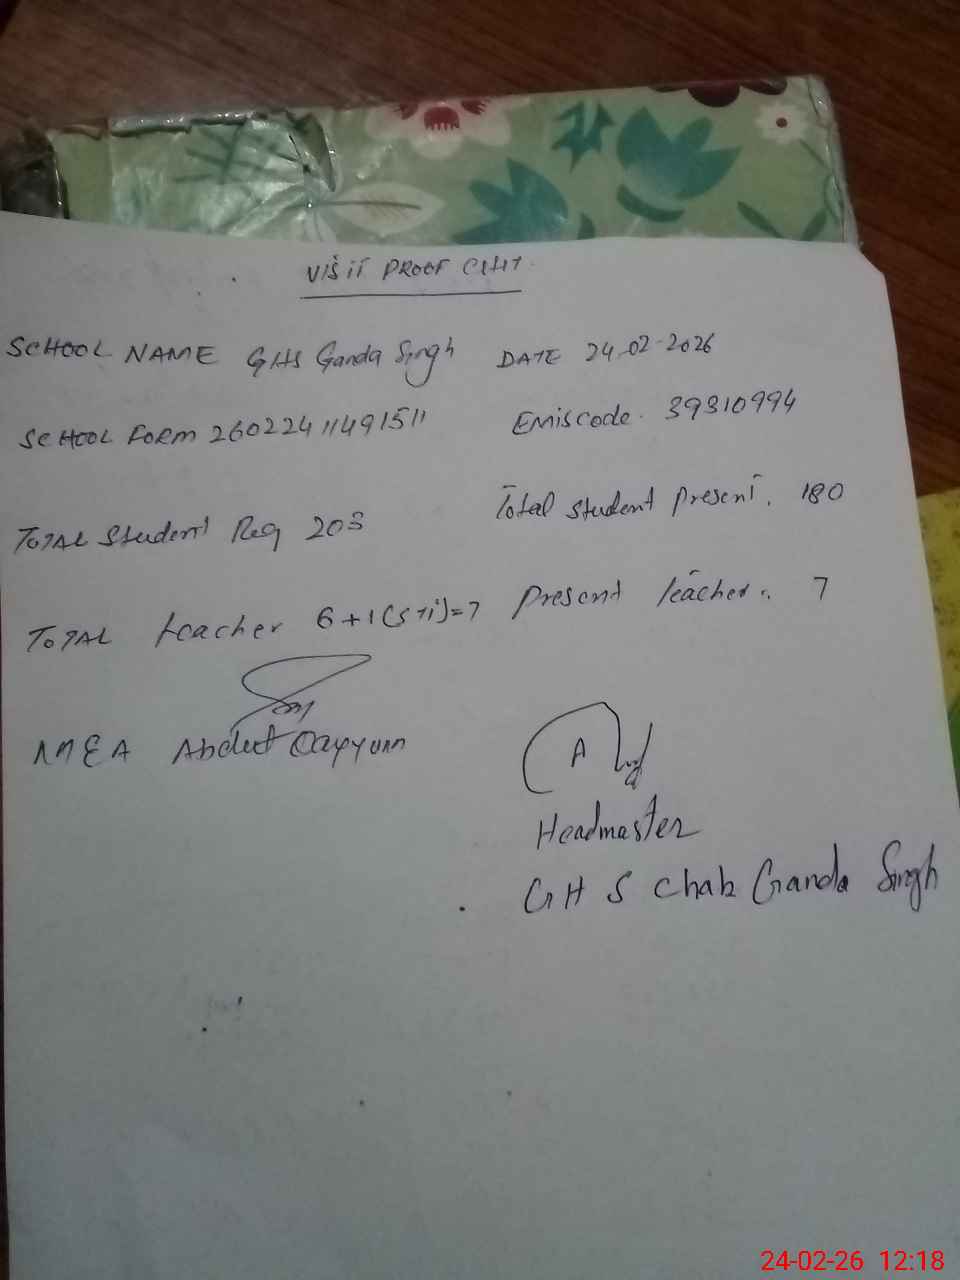 VISIT PROOF CHT
SCHOOL NAME GHS Ganda Singh DATE 24-02-2026
SCHOOL FORM 26022411491511 Emiscode. 39310994
TOTAL Student Reg 203 Total student present. 180
TOTAL teacher 6+1(STI)=7 Present teacher. 7
MEA Abdul Qayyum
A
Headmaster
GHS Chak Ganda Singh
24-02-26 12:18